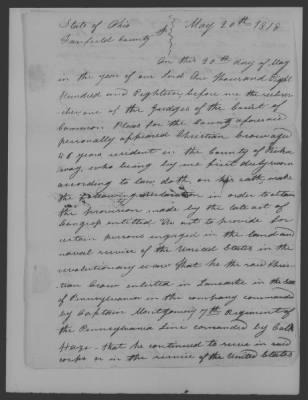 State of Ohio
Fairfield County ss
May 20th 1818
On this 20th day of May
in the year of our Lord One Thousand Eight
Hundred and Eighteen before me the subscri
ber one of the Judges of the Court of
Common Pleas for the County aforesaid
personally appeared Christian Crow aged
years resident in the County of Picka
way, who being by me first duly sworn
according to law, doth, on his oath, make
the following declaration in order to obtain
the provision made by the late act of
Congress entitled An act to provide for
certain persons engaged in the land and
naval service of the United States in the
revolutionary war that he the said Chris
tian Crow enlisted in Lancaster in the
of Pennsylvania in the company commanded
by Captain Montgomery 7th Regiment of
the Pennsylvania Line commanded by
Hays - that he continued to serve in said
corps or in the service of the United States